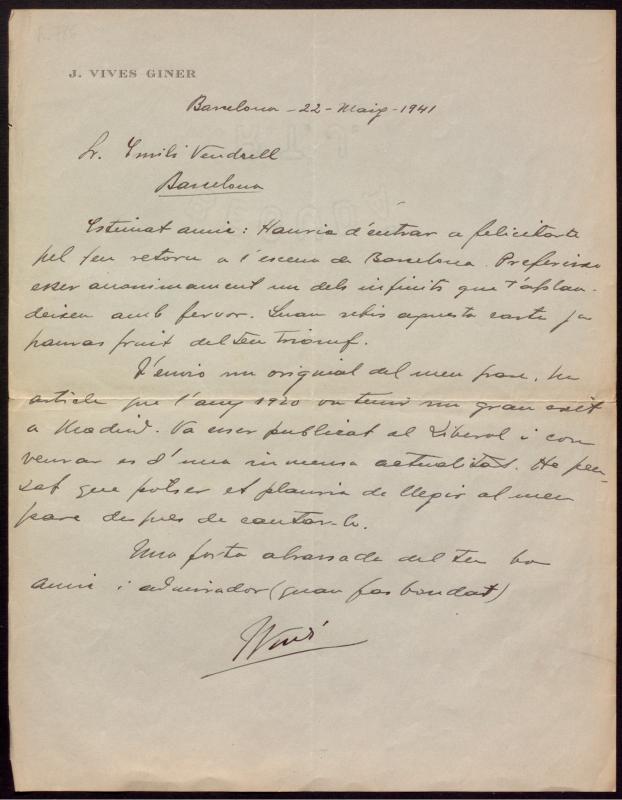 J. VIVES GINER
Barcelona - 22 - Maig - 1941
Sr. Emili Vendrell
Barcelona
Estimat amic: Hauria d'entrar a felicitarte
pel teu retorn a l'escena de Barcelona. Prefereixo
esser anonimament un dels infinits que t'aplau-
deixen amb fervor. Quan rebis aquesta carta ja
pauras fruit del teu triomf.
T'envio un original del meu pare. Un
article que l'any 1920 va tenir un gran exit
a Madrid. Va esser publicat al Liberal i com
veuras es d'una inmensa actualitat. He pen-
sat que potser et plauria de llegir al meu
pare despues de cantar-lo.
Una forta abrassada del teu bo
amic i admirador (quan fas bondat)